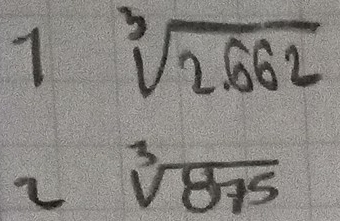 1 ∛2.662
2 ∛875